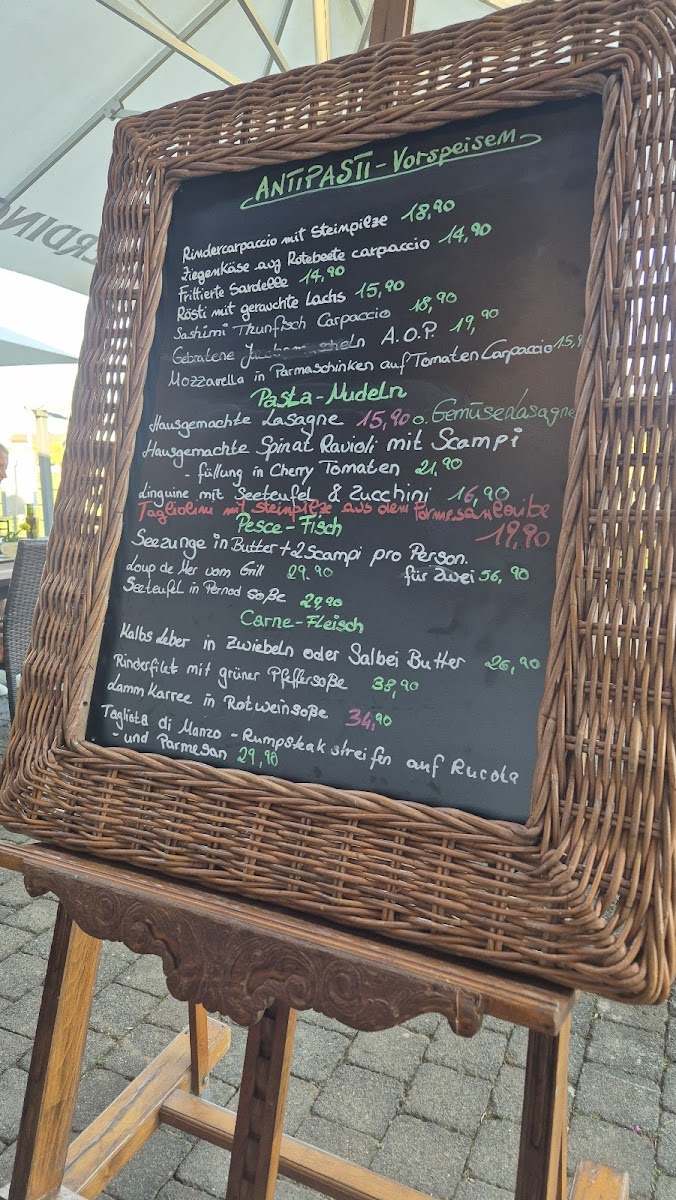 ANTIPASTI - Vorspeisem
Rindercarpaccio mit Steinpilze 18,90
Ziegenkäse auf Rotebeete carpaccio 14,90
Frittierte Sardelle 14,90
Rösti mit gerauchte Lachs 15,90
Sashimi Thunfisch Carpaccio 18,90
Gebratene A.O.P. 19,90
Mozzarella in Parmaschinken auf Tomaten Carpaccio 15,
Pasta-Nudeln
Hausgemachte Lasagne 15,90 o. Gemüselasagne
Hausgemachte Spinat Ravioli mit Scampi
- füllung in Cherry Tomaten 21,90
Linguine mit Seeteufel & Zucchini 16,90
Tagliolini mit steinpilze aus dem Parmesanlaibe
19,90
Pesce-Fisch
Seezunge in Butter + 2 Scampi pro Person.
für zwei 56,90
Loup de Mer vom Grill 29.90
Seeteufel in Pernod soße 29,90
Carne-Fleisch
Kalbsleber in Zwiebeln oder Salbei Butter 26,90
Rinderfilet mit grüner Pfeffersoße 38,90
Lamm Karree in Rotweinsoße 34,90
Tagliata di Manzo - Rumpsteak streifen auf Rucola
- und Parmesan 29,90
ERDING